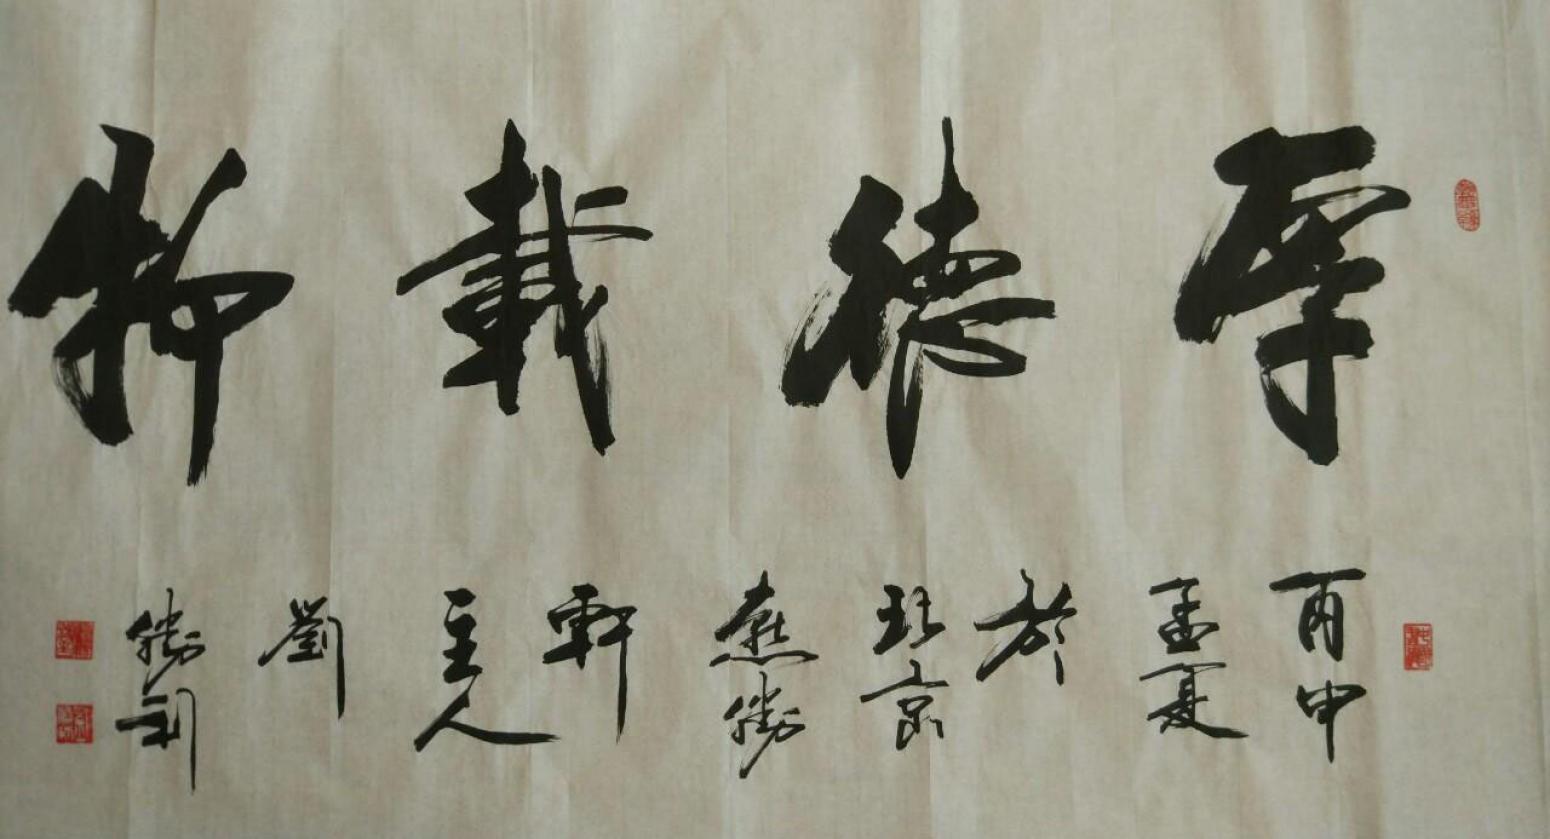 厚德載物
丙申
孟夏
於
北京
燕勝
軒
主人
劉
勝利